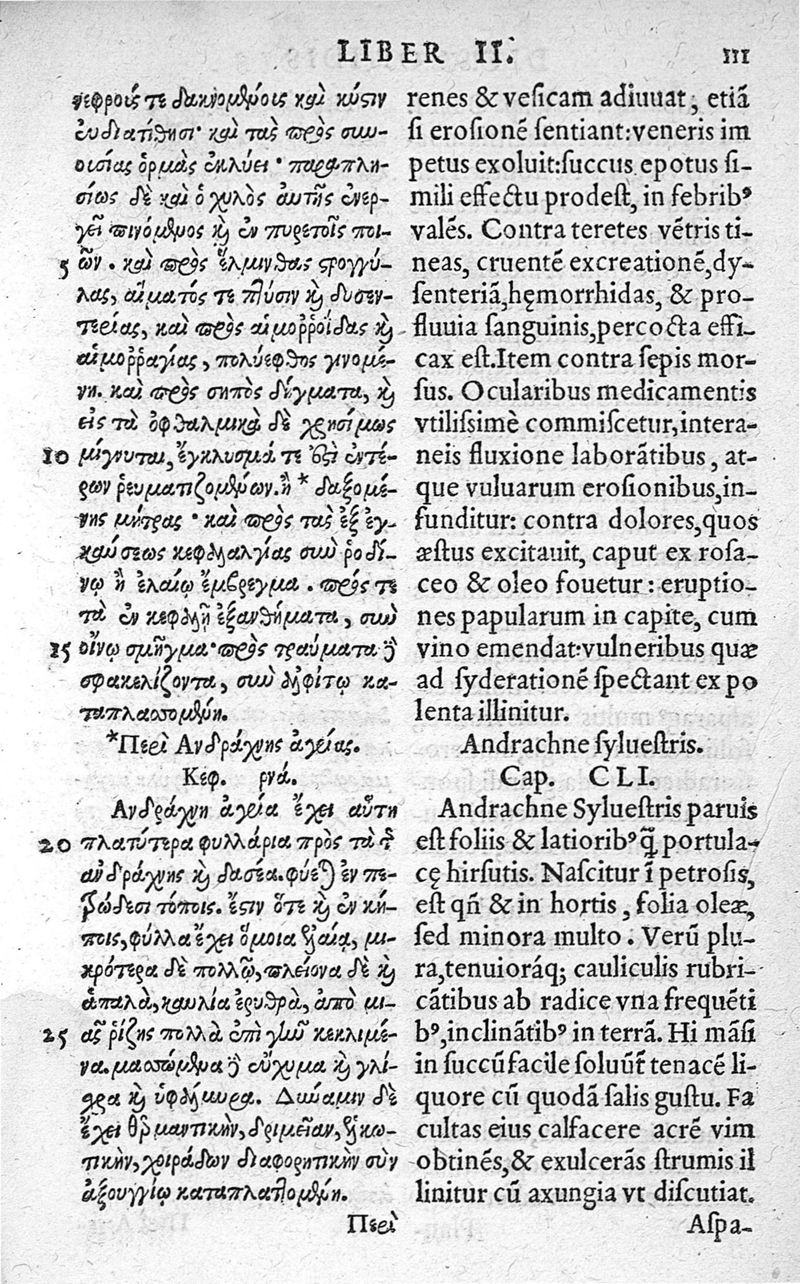 LIBER II. 111
νεφροῖς τε δακνομένοις καὶ κύστιν
εὐδιατίθησι· καὶ τὰς πρὸς συν-
ουσίας ὁρμὰς ἐκλύει · παραπλη-
σίως δὲ καὶ ὁ χυλὸς αὐτῆς ἐνερ-
γεῖ πινόμενος καὶ ἐν πυρετοῖς ποι-
5 ῶν. καὶ πρὸς ἕλμινθας στρογγύ-
λας, αἵματός τε πτύσιν καὶ δυσεν-
τερίας, καὶ πρὸς αἱμοῤῥοΐδας καὶ
αἱμοῤῥαγίας, πολύεφθος γινομέ-
νη. καὶ πρὸς σηπὸς δήγματα, καὶ
εἰς τὰ ὀφθαλμικὰ δὲ χρησίμως
10 μίγνυται, ἔγκλυσμά τε ἐπὶ ἐντέ-
ρων ῥευματιζομένων. ἢ * δαξομέ-
νης μήτρας · καὶ πρὸς τὰς ἐξ ἐγ-
καύσεως κεφαλαλγίας σὺν ῥοδί-
νῳ ἢ ἐλαίῳ ἔμβρεγμα . πρός τε
τὰ ἐν κεφαλῇ ἐξανθήματα, σὺν
15 οἴνῳ σμῆγμα· πρὸς τραύματα δὲ
σφακελίζοντα, σὺν ἀλφίτῳ κα-
ταπλασσομένη.
*Περὶ Ανδράχνης ἀγρίας.
Κεφ. ρνά.
Ανδράχνη ἀγρία ἔχει αὕτη
20 πλατύτερα φυλλάρια πρὸς τὰ τῆς
ἀνδράχνης καὶ δασέα. φύεται ἐν πε-
τρώδεσι τόποις. ἔστιν ὅτε καὶ ἐν κή-
ποις, φύλλα ἔχει ὅμοια ἐλαίᾳ, μι-
κρότερα δὲ πολλῷ, πλείονα δὲ καὶ
ἁπαλὰ, καυλία ἐρυθρὰ, ἀπὸ μι-
25 ᾶς ῥίζης πολλὰ ἐπὶ γῆν κεκλιμέ-
να. μασσώμενα δὲ εὔχυμα καὶ γλί-
σχρα καὶ ὑφάλμυρα. Δύναμιν δὲ
ἔχει θερμαντικὴν, δριμεῖαν, ἑλκω-
τικὴν, χοιράδων διαφορητικὴν σὺν
ἀξουγγίῳ καταπλαττομένη.
Περὶ
renes & vesicam adiuuat, etiā
si erosionē sentiant:veneris im
petus exoluit:succus epotus si-
mili effectu prodest, in febribꝰ
valēs. Contra teretes vētris ti-
neas, cruentē excreationē,dy-
senteriā,hęmorrhidas, & pro-
fluuia sanguinis,percocta effi-
cax est.Item contra sepis mor-
sus. Ocularibus medicamentis
vtilissimè commiscetur,intera-
neis fluxione laborātibus, at-
que vuluarum erosionibus,in-
funditur: contra dolores,quos
æstus excitauit, caput ex rosa-
ceo & oleo fouetur : eruptio-
nes papularum in capite, cum
vino emendat:vulneribus quæ
ad syderationē spectant ex po
lenta illinitur.
Andrachne syluestris.
Cap. CLI.
Andrachne Syluestris paruis
est foliis & latioribꝰ q̃ portula-
cę hirsutis. Nascitur ī petrosis,
est qñ & in hortis, folia oleæ,
sed minora multo. Verū plu-
ra,tenuioráq; cauliculis rubri-
cātibus ab radice vna frequēti
bꝰ,inclinātibꝰ in terrā. Hi māsi
in succū facile soluūt̃ tenacē li-
quore cū quodā salis gustu. Fa
cultas eius calfacere acrē vim
obtinēs,& exulcerās strumis il
linitur cū axungia vt discutiat.
Aspa-